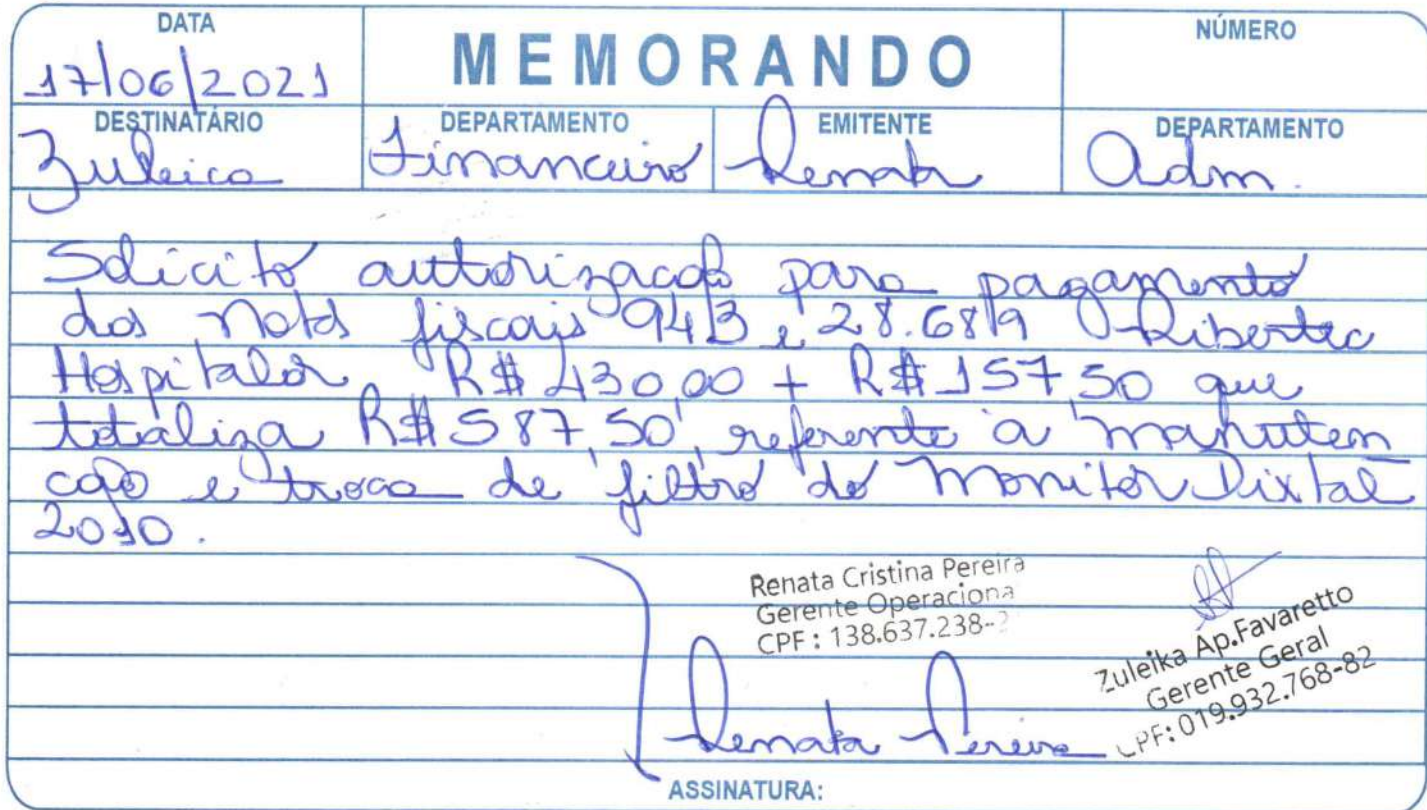 DATA
MEMORANDO
NÚMERO
17/06/2021
DESTINATÁRIO DEPARTAMENTO EMITENTE DEPARTAMENTO
Zuleica Financeiro Renata Adm.
Solicito autorizacão para pagamento
das notas fiscais 943 e 28.689 Ribertec
Hospitalar R$ 430,00 + R$ 157,50 que
totaliza R$ 587,50, referente a manuten
cão e troca de filtro do Monitor Dixtal
2010.
Renata Cristina Pereira
Gerente Operaciona
CPF: 138.637.238-
Zuleika Ap.Favaretto
Gerente Geral
CPF: 019.932.768-82
Renata Pereira
ASSINATURA: